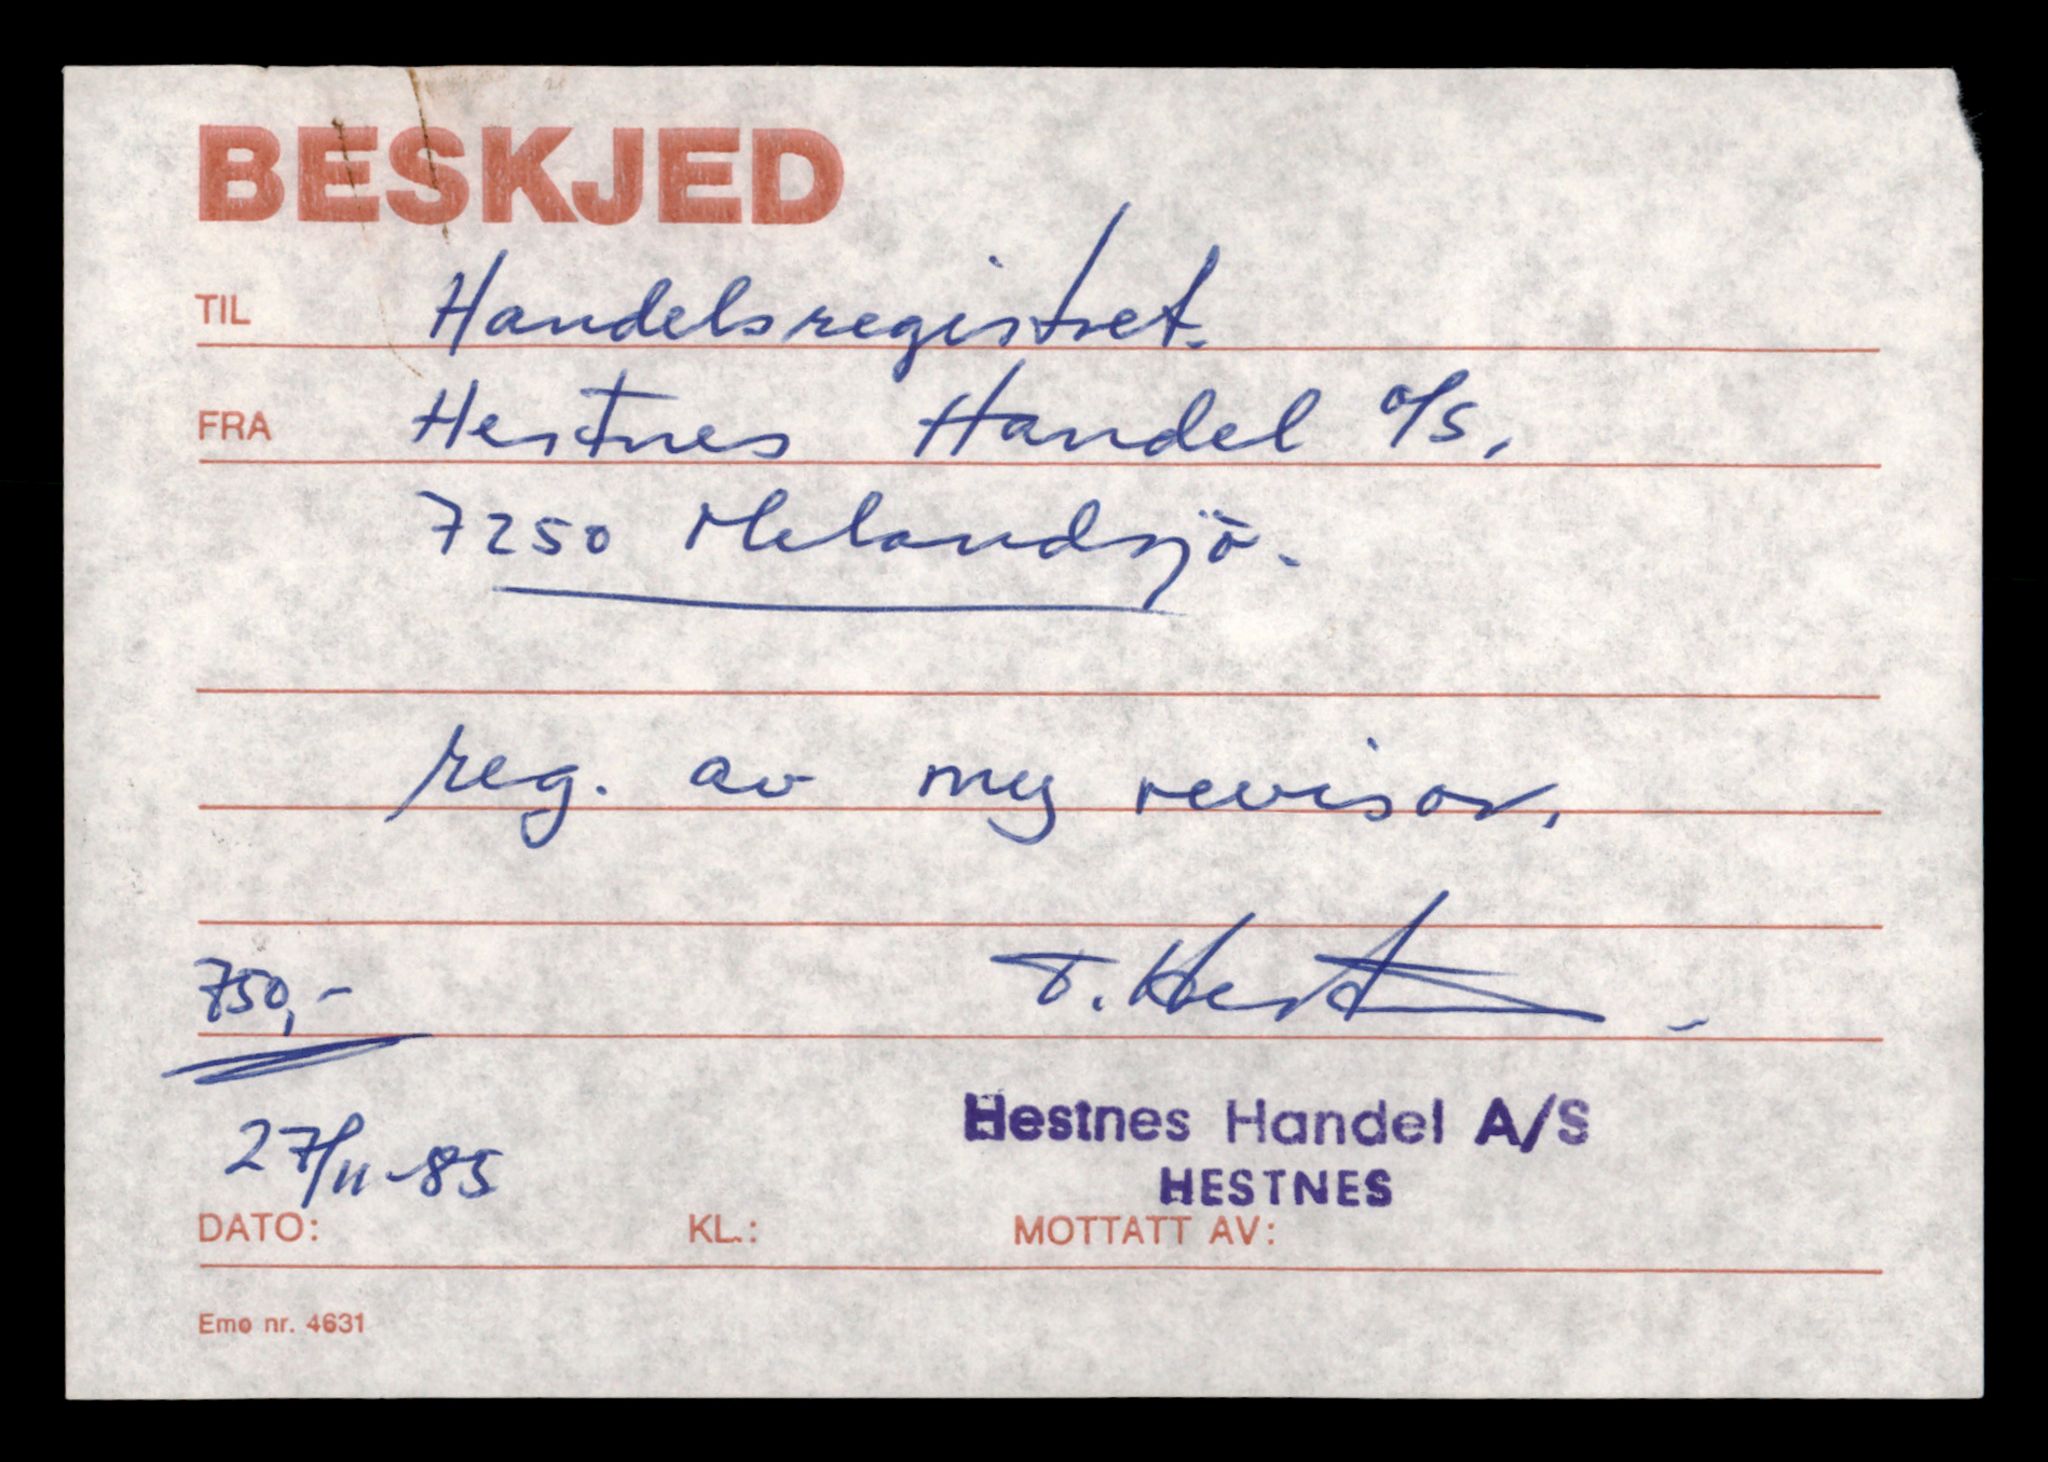 BESKJED
TIL Handelsregistret.
FRA Hestnes Handel a/s,
7250 Melandsjö.
reg. av ny revisor,
750,- T. Hest
27/11-85 Hestnes Handel A/S
HESTNES
DATO: KL.: MOTTATT AV:
Emo nr. 4631